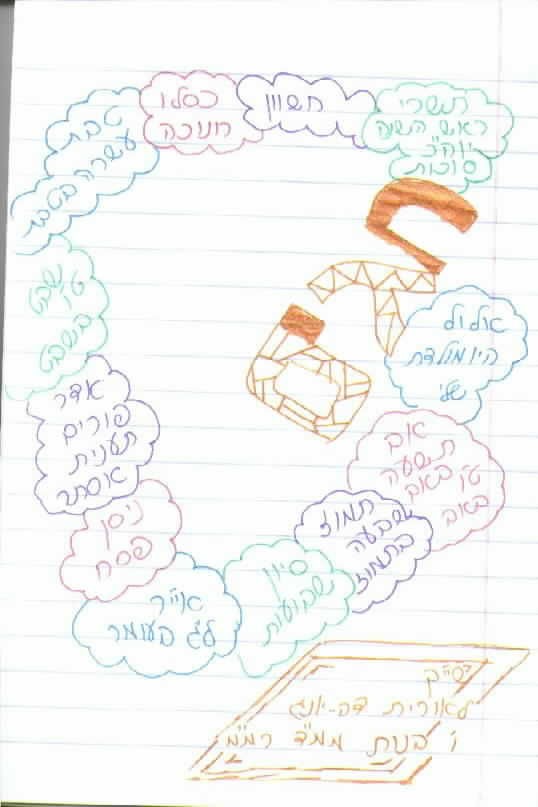 תשרי
ראש השנה
יוה״כ
סוכות
חשוון
כסלו
חנוכה
טבת
עשרה בטבת
שבט
ט"ו
בשבט
אדר
פורים
תענית
אסתר
ניסן
פסח
אייר
ל"ג בעומר
סיון
שבועות
תמוז
שבעה
בתמוז
אב
תשעה
באב
ט"ו
באב
אלול
היומולדת
שלי
לאורית דה-יונג
ו' בנות ממ"ד